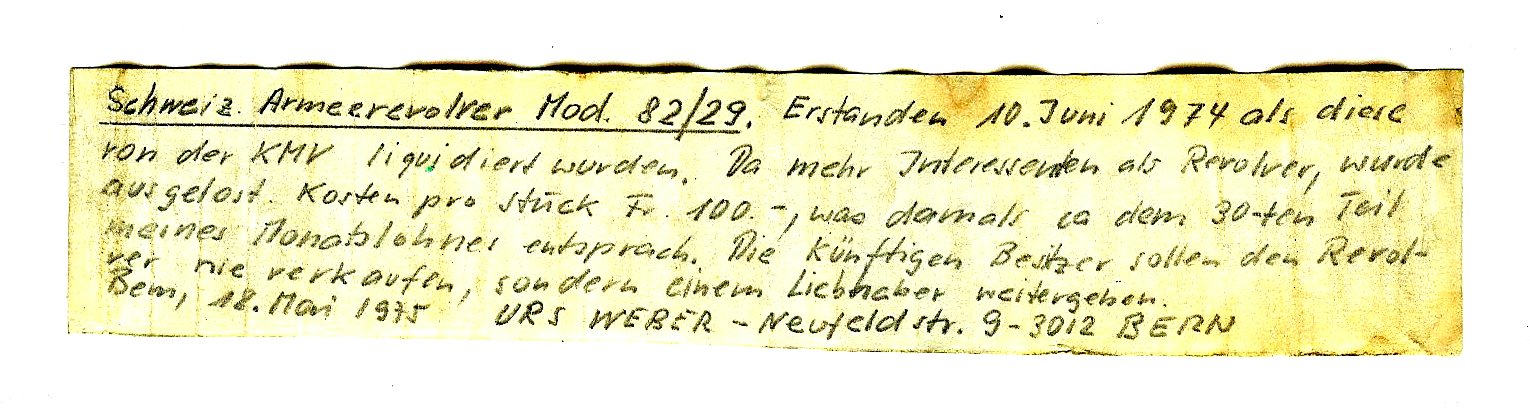 Schweiz. Armeerevolver Mod. 82/29. Erstanden 10. Juni 1974 als diese
von der KMV liquidiert wurden. Da mehr Interessenten als Revolver, wurde
ausgelost. Kosten pro Stück Fr. 100.-, was damals ca dem 30-ten Teil
meines Monatslohnes entsprach. Die künftigen Besitzer sollen den Revol-
ver nie verkaufen, sondern einem Liebhaber weitergeben.
Bern, 18. Mai 1975 URS WEBER - Neufeldstr. 9 - 3012 BERN